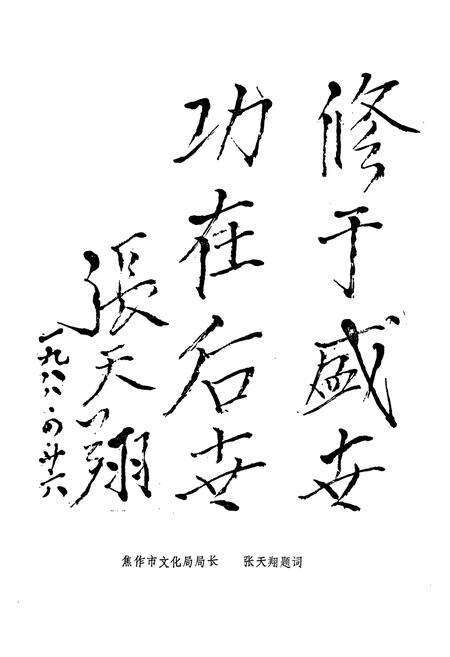 修于盛世
功在后世
張天翔
一九八八·四·廿六
焦作市文化局局长 张天翔题词